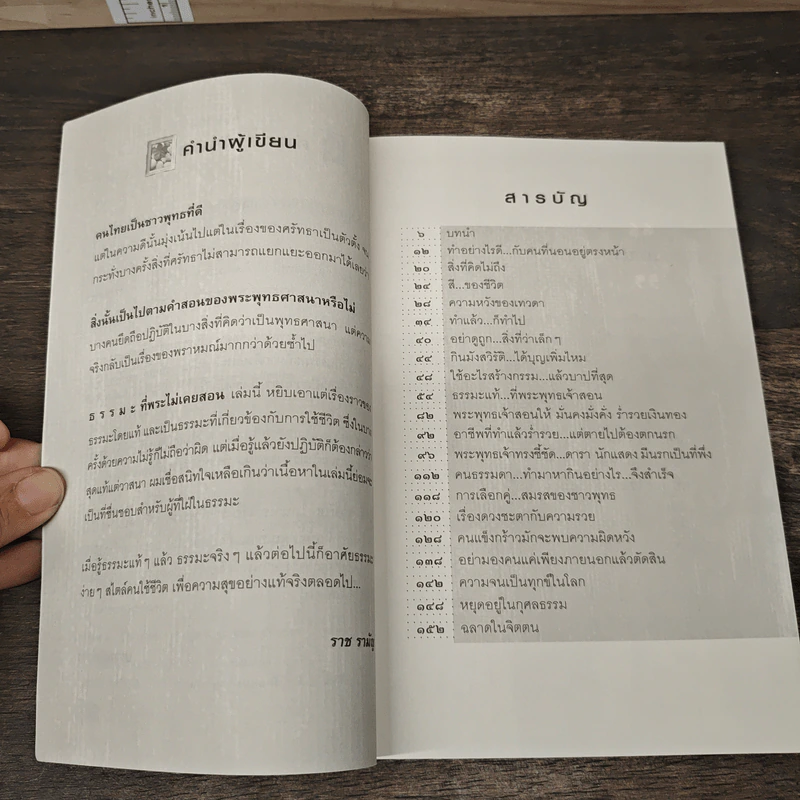 inches
คำนำผู้เขียน
คนไทยเป็นชาวพุทธที่ดี
แต่ในความดีนั้นมุ่งเน้นไปแต่ในเรื่องของศรัทธาเป็นตัวตั้ง จน
กระทั่งบางครั้งสิ่งที่ศรัทธาไม่สามารถแยกแยะออกมาได้เลยว่า
สิ่งนั้นเป็นไปตามคำสอนของพระพุทธศาสนาหรือไม่
บางคนยึดถือปฏิบัติในบางสิ่งที่คิดว่าเป็นพุทธศาสนา แต่ความ
จริงกลับเป็นเรื่องของพราหมณ์มากกว่าด้วยซ้ำไป
ธรรมะ ที่พระไม่เคยสอน เล่มนี้ หยิบเอาแต่เรื่องราวของ
ธรรมะโดยแท้ และเป็นธรรมะที่เกี่ยวข้องกับการใช้ชีวิต ซึ่งในบาง
ครั้งด้วยความไม่รู้ก็ไม่ถือว่าผิด แต่เมื่อรู้แล้วยังปฏิบัติก็ต้องกล่าวว่า
สุดแท้แต่วาสนา ผมเชื่อสนิทใจเหลือเกินว่าเนื้อหาในเล่มนี้ย่อมจะ
เป็นที่ชื่นชอบสำหรับผู้ที่ใฝ่ในธรรมะ
เมื่อรู้ธรรมะแท้ๆ แล้ว ธรรมะจริงๆ แล้วต่อไปนี้ก็อาศัยธรรมะ
ง่ายๆ สไตล์คนใช้ชีวิต เพื่อความสุขอย่างแท้จริงตลอดไป...
ราช รามัญ
สารบัญ
๖ บทนำ
๑๒ ทำอย่างไรดี...กับคนที่นอนอยู่ตรงหน้า
๒๐ สิ่งที่คิดไม่ถึง
๒๔ สี...ของชีวิต
๒๘ ความหวังของเทวดา
๓๔ ทำแล้ว...ก็ทำไป
๔๐ อย่าดูถูก...สิ่งที่ว่าเล็กๆ
๔๔ กินมังสวิรัติ...ได้บุญเพิ่มไหม
๔๘ ใช้อะไรสร้างกรรม...แล้วบาปที่สุด
๕๔ ธรรมะแท้...ที่พระพุทธเจ้าสอน
๘๒ พระพุทธเจ้าสอนให้ มั่นคงมั่งคั่ง ร่ำรวยเงินทอง
๙๒ อาชีพที่ทำแล้วร่ำรวย...แต่ตายไปต้องตกนรก
๙๖ พระพุทธเจ้าทรงชี้ชัด...ดารา นักแสดง มีนรกเป็นที่พึ่ง
๑๑๒ คนธรรมดา...ทำมาหากินอย่างไร...จึงสำเร็จ
๑๑๘ การเลือกคู่...สมรสของชาวพุทธ
๑๒๐ เรื่องดวงชะตากับความรวย
๑๒๘ คนแข็งกร้าวมักจะพบความผิดหวัง
๑๓๘ อย่ามองคนแค่เพียงภายนอกแล้วตัดสิน
๑๔๒ ความจนเป็นทุกข์ในโลก
๑๔๘ หยุดอยู่ในกุศลธรรม
๑๕๒ ฉลาดในจิตตน